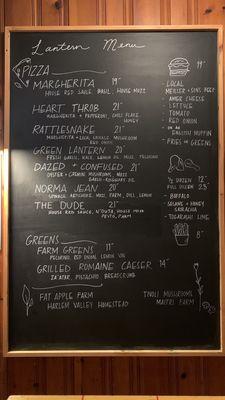 Lantern Menu
PIZZA
MARGHERITA 19"
HOUSE RED SAUCE, BASIL, HOUSE MOZZ
HEART THROB 21"
MARGHERITA + PEPPERONI, CHILI FLAKE
HONEY
RATTLESNAKE 21"
MARGHERITA +
RED ONION
GREEN LANTERN 20"
FRESH GARLIC, KALE, LEMON OIL, MOZZ, PECORINO
DAZED + CONFUSED 21"
OYSTER + CREMINI MUSHROOMS, MOZZ
GARLIC-ROSEMARY OIL
NORMA JEAN 20"
SPINACH, ARTICHOKE, MOZZ, PARM, DILL, LEMON
THE DUDE 21"
HOUSE RED SAUCE, N'DUJA, HOUSE MOZZ
PESTO, PARM
GREENS
FARM GREENS 11"
PECORINO, RED ONION, LEMON VIN
GRILLED ROMAINE CAESAR 14"
ZA'ATAR, PISTACHIO BREADCRUMB
FAT APPLE FARM
HARLEM VALLEY HOMESTEAD
19"
- LOCAL
MEILLER + SONS BEEF
- AMER CHEESE
- LETTUCE
- TOMATO
- RED ONION
- ON AN
ENGLISH MUFFIN
- FRIES OR GREENS
1/2 DOZEN 12"
FULL DOZEN 23"
- BUFFALO
- SESAME + HONEY
SRIRACHA
- TOGARASHI LIME
8"
TIVOLI MUSHROOMS
MAITRI FARM